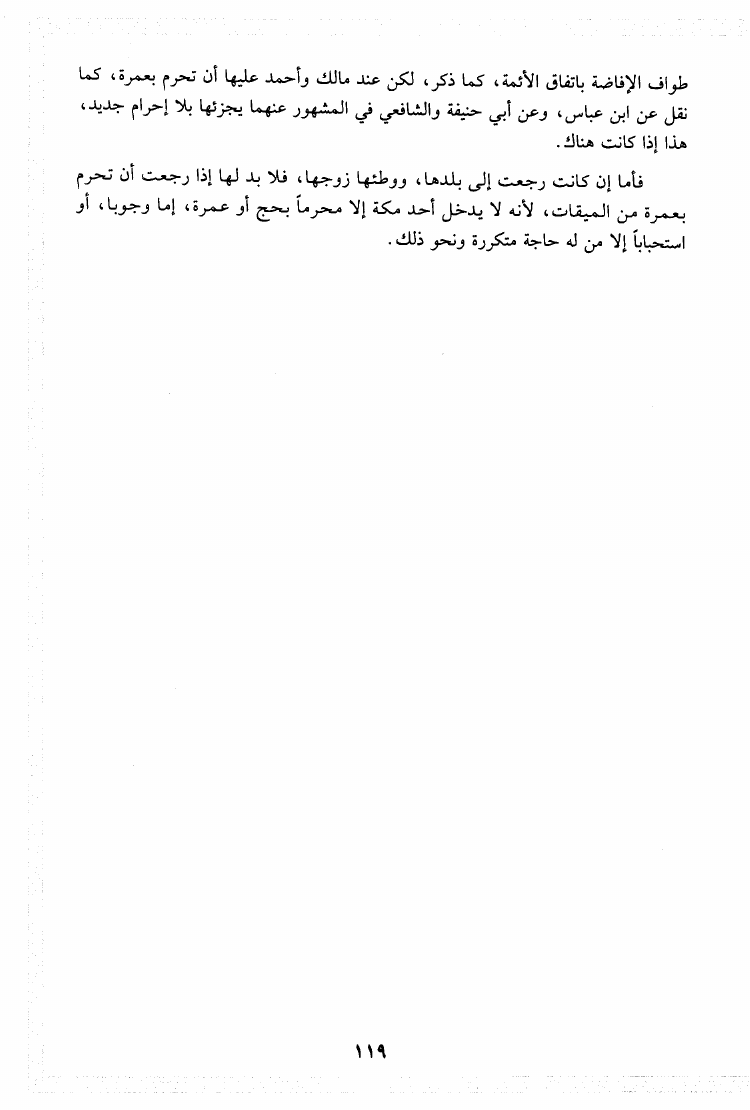 طواف الإفاضة باتفاق الأئمة، كما ذكر، لكن عند مالك وأحمد عليها أن تحرم بعمرة، كما
نقل عن ابن عباس، وعن أبي حنيفة والشافعي في المشهور عنهما يجزئها بلا إحرام جديد،
هذا إذا كانت هناك.
فأما إن كانت رجعت إلى بلدها، ووطئها زوجها، فلا بد لها إذا رجعت أن تحرم
بعمرة من الميقات، لأنه لا يدخل أحد مكة إلا محرماً بحج أو عمرة، إما وجوبا، أو
استحباباً إلا من له حاجة متكررة ونحو ذلك.
١١٩